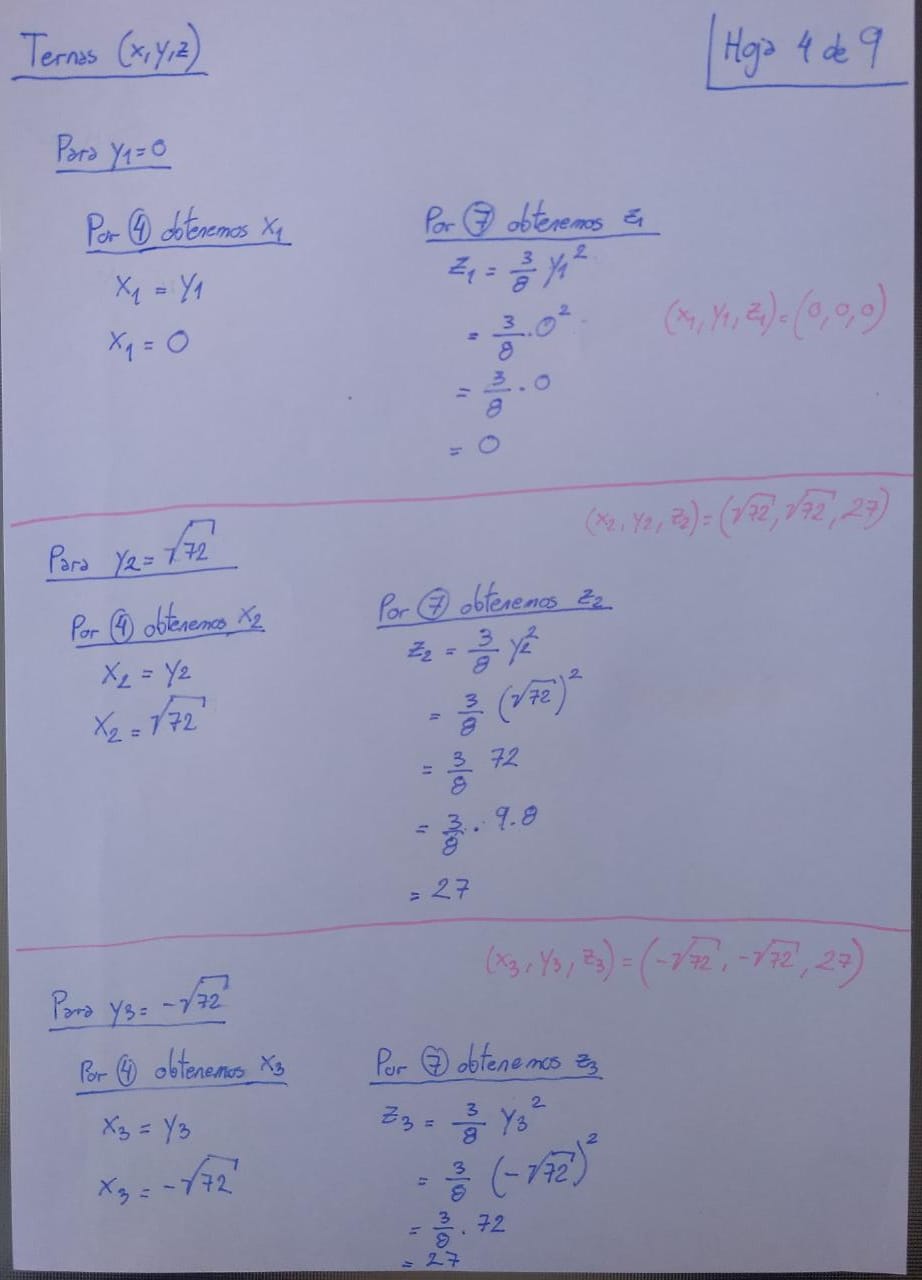 Ternas (x,y,z)
Hoja 4 de 9
Para y₁=0
Por ④ obtenemos x₁
x₁ = y₁
x₁ = 0
Por ⑦ obtenemos z₁
z₁ = 3/8 y₁²
= 3/8 . 0²
= 3/8 . 0
= 0
(x₁, y₁, z₁)=(0,0,0)
(x₂, y₂, z₂)=(√72, √72, 27)
Para y₂=√72
Por ④ obtenemos x₂
x₂ = y₂
x₂ = √72
Por ⑦ obtenemos z₂
z₂ = 3/8 y₂²
= 3/8 (√72)²
= 3/8 72
= 3/8 . 9.8
= 27
(x₃, y₃, z₃)=(-√72, -√72, 27)
Para y₃= -√72
Por ④ obtenemos x₃
x₃ = y₃
x₃ = -√72
Por ⑦ obtenemos z₃
z₃ = 3/8 y₃²
= 3/8 (-√72)²
= 3/8 . 72
= 27